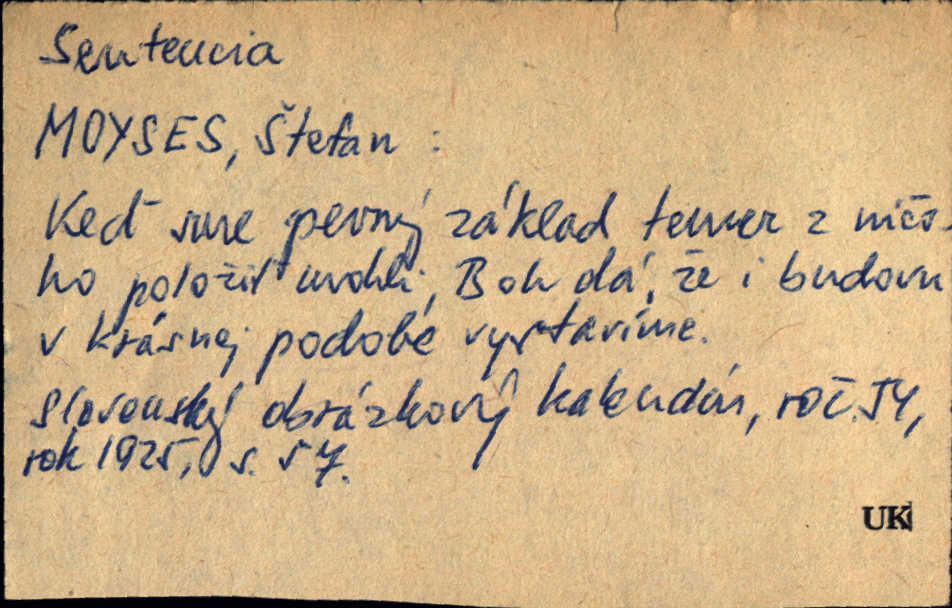 Sentencia
MOYSES, Štefan :
Keď sme pevný základ temer z ničo-
ho položiť mohli, Boh dá, že i budovu
v krásnej podobe vystavíme.
Slovenský obrázkový kalendár, roč. IV,
rok 1925, s. 57.
UK